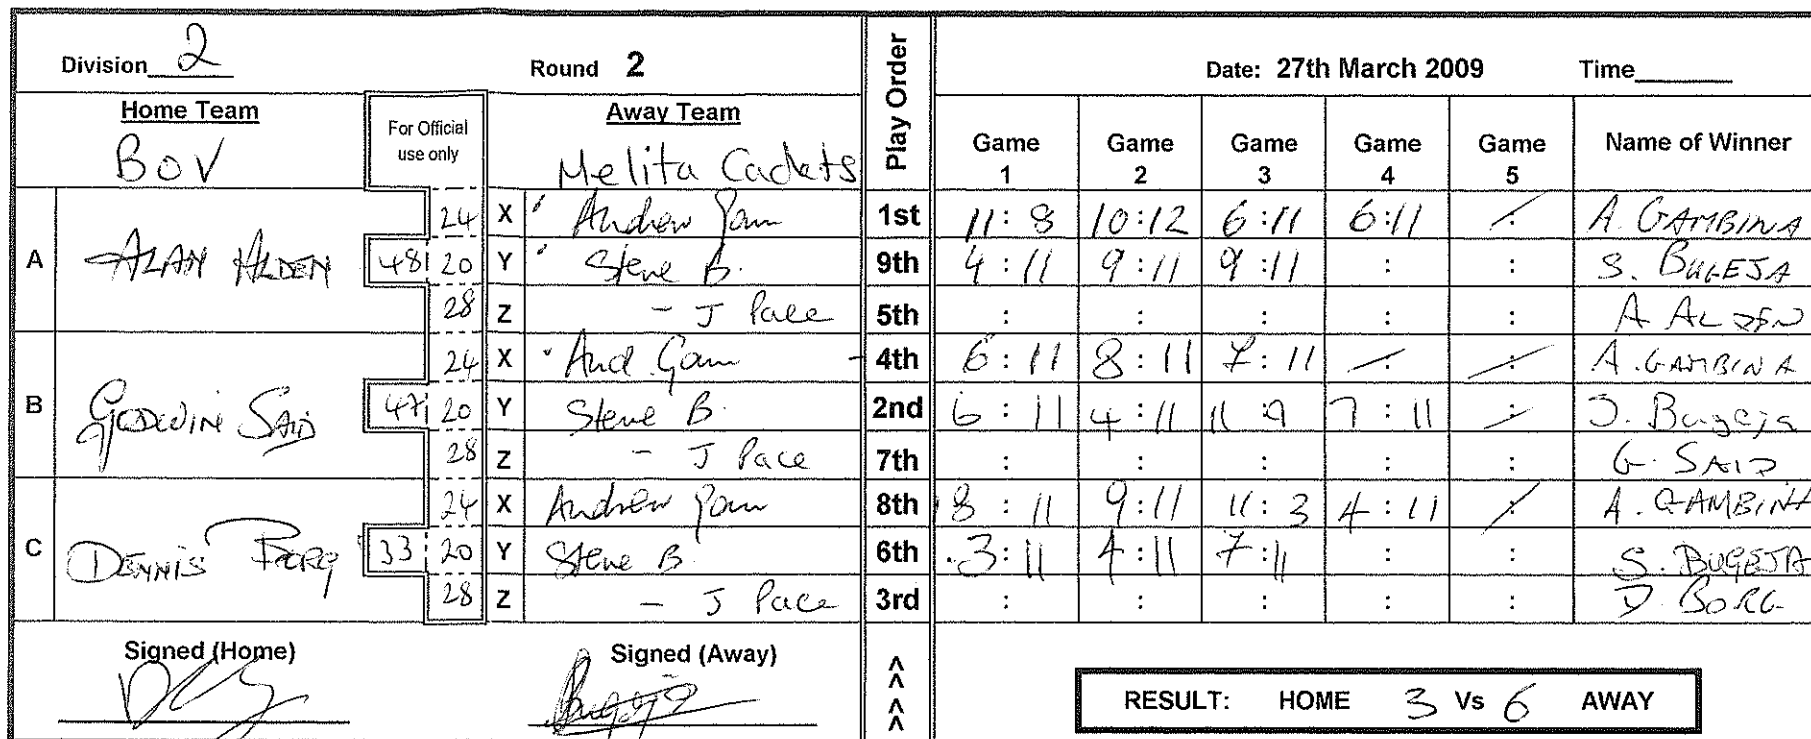 Division 2 Round 2 Play Order Date: 27th March 2009 Time
Home Team For Official use only Away Team Game 1 Game 2 Game 3 Game 4 Game 5 Name of Winner
BOV Melita Cadets
A ALAN ALDEN 48 24 X Andrew Gam 1st 11:8 10:12 6:11 6:11 : A. GAMBINA
20 Y Steve B. 9th 4:11 9:11 9:11 : : S. BUGEJA
28 Z - J Pace 5th : : : : : A ALDEN
B GODWIN SAID 47 24 X And. Gam 4th 6:11 8:11 7:11 : : A. GAMBINA
20 Y Steve B. 2nd 6:11 4:11 11:9 7:11 : S. Bugeja
28 Z - J Pace 7th : : : : : G. SAID
C DENNIS BORG 33 24 X Andrew Gam 8th 8:11 9:11 11:3 4:11 : A. GAMBINA
20 Y Steve B 6th 3:11 4:11 7:11 : : S. BUGEJA
28 Z - J Pace 3rd : : : : : D. BORG
Signed (Home) Signed (Away) < < < < RESULT: HOME 3 Vs 6 AWAY